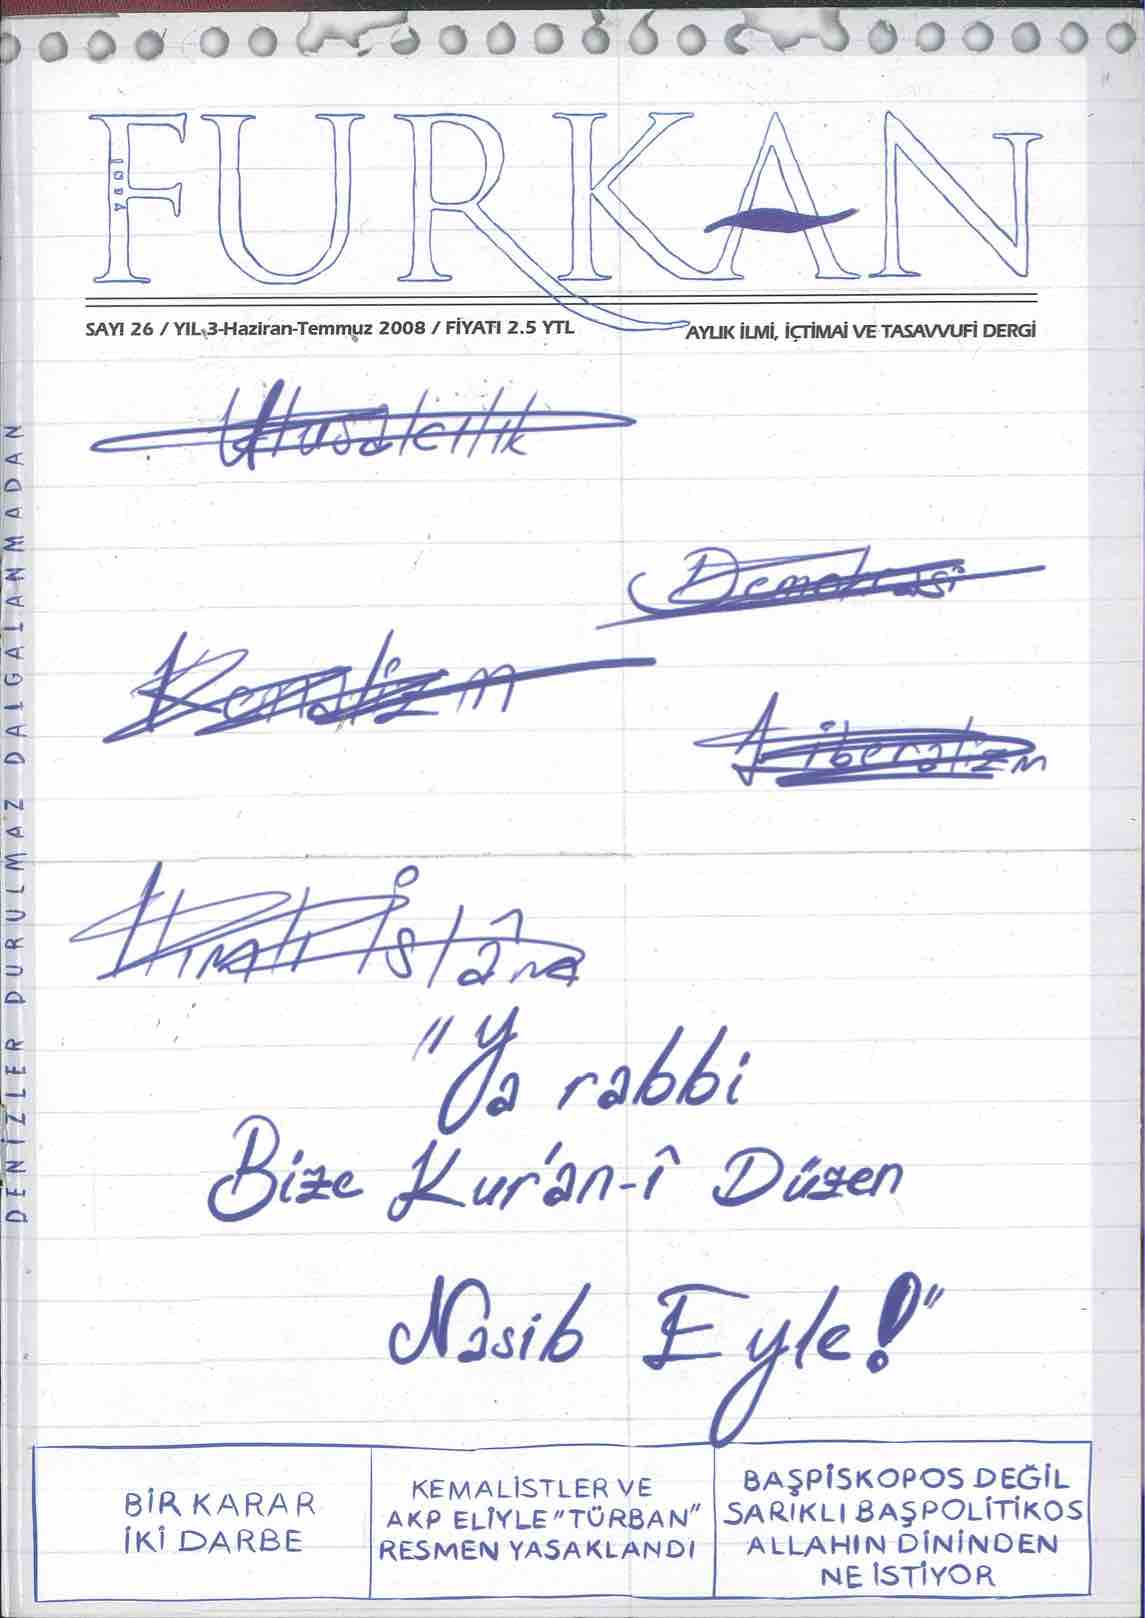 FURKAN
SAYI 26 / YIL 3-Haziran-Temmuz 2008 / FİYATI 2.5 YTL
AYLIK İLMİ, İÇTİMAİ VE TASAVVUFİ DERGİ
DENİZLER DURULMAZ DALGALANMADAN
Ulusalcılık
Demokrasi
Kemalizm
Liberalizm
Ilımlı İslâma
"Ya rabbi
Bize Kur'an-î Düzen
Nasib Eyle!"
BİR KARAR
İKİ DARBE
KEMALİSTLER VE
AKP ELİYLE "TÜRBAN"
RESMEN YASAKLANDI
BAŞPİSKOPOS DEĞİL
SARIKLI BAŞPOLİTİKOS
ALLAHIN DİNİNDEN
NE İSTİYOR